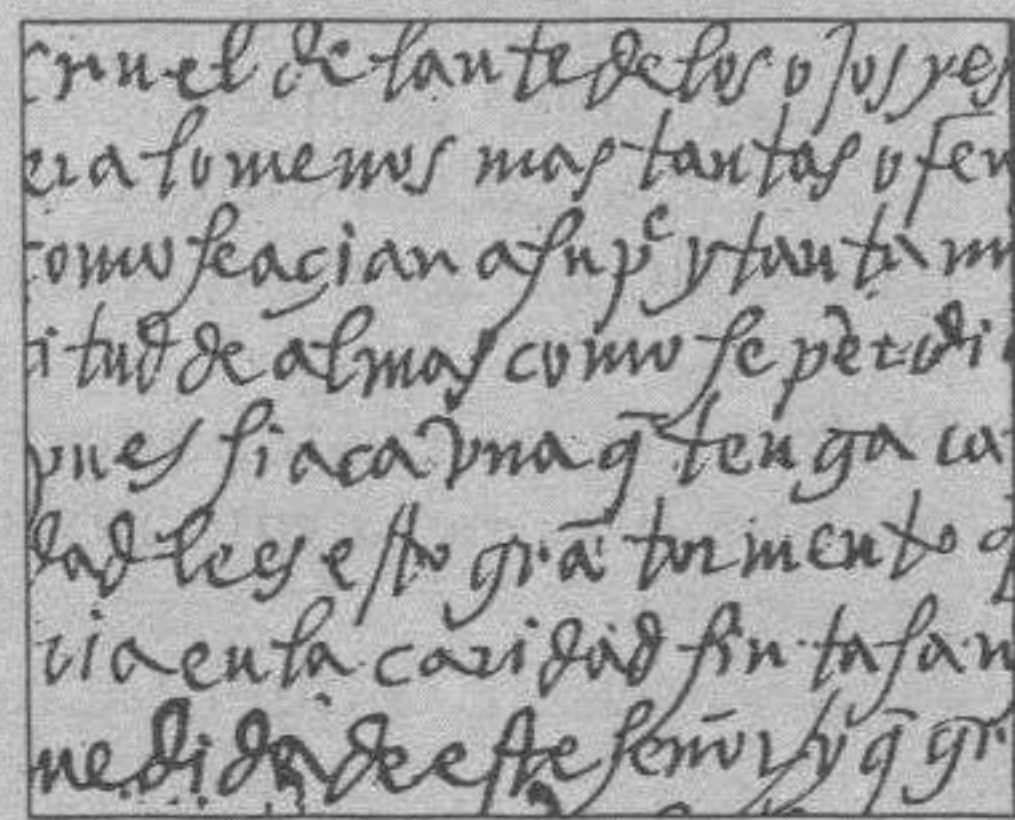 cruel delante de los ojos y es
era lo menos mas tantas ofen
como se açian a su pe y tanta m
itud de almas como se perdi
pues si aca vna q̃ tenga ca
dad le es esto grã tormento q
ria en la caridad sin tasa n
medida de este señor y q̃ gr